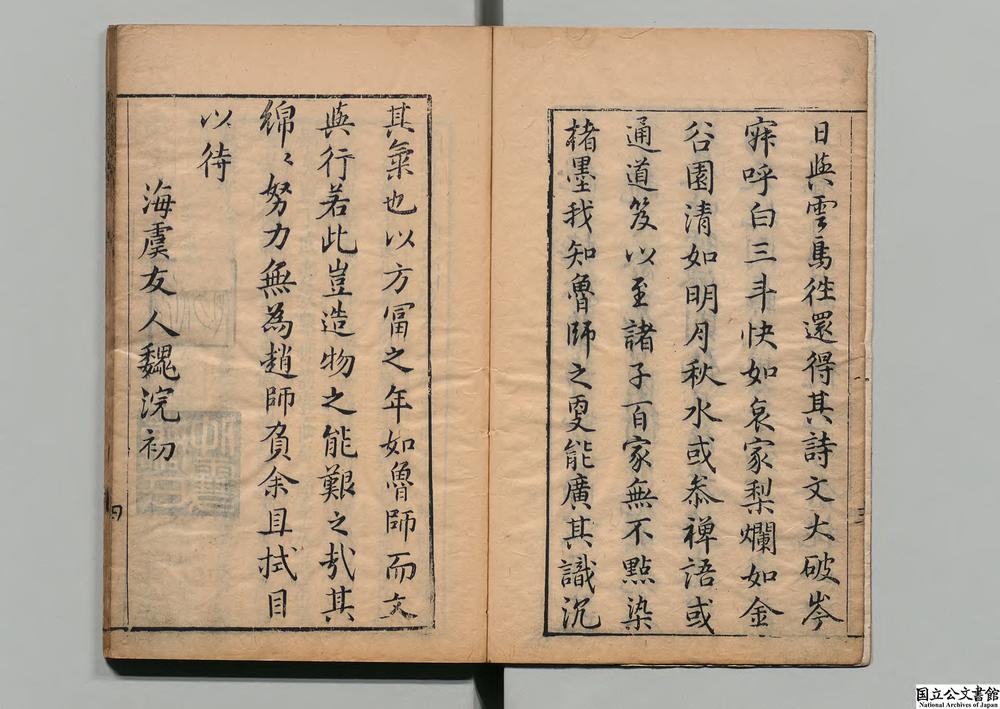 日與雲馬徃還得其詩文大破岑
寐呼白三斗快如哀家梨爛如金
谷園清如明月秋水或叅禅語或
通道笈以至諸子百家無不點染
楮墨我知魯師之更能廣其識沉
其氣也以方冨之年如魯師而文
與行若此豈造物之能艱之㢤其
綿〻努力無為趙師負余且拭目
以待
海虞友人魏浣初
三
四
国立公文書館
National Archives of Japan